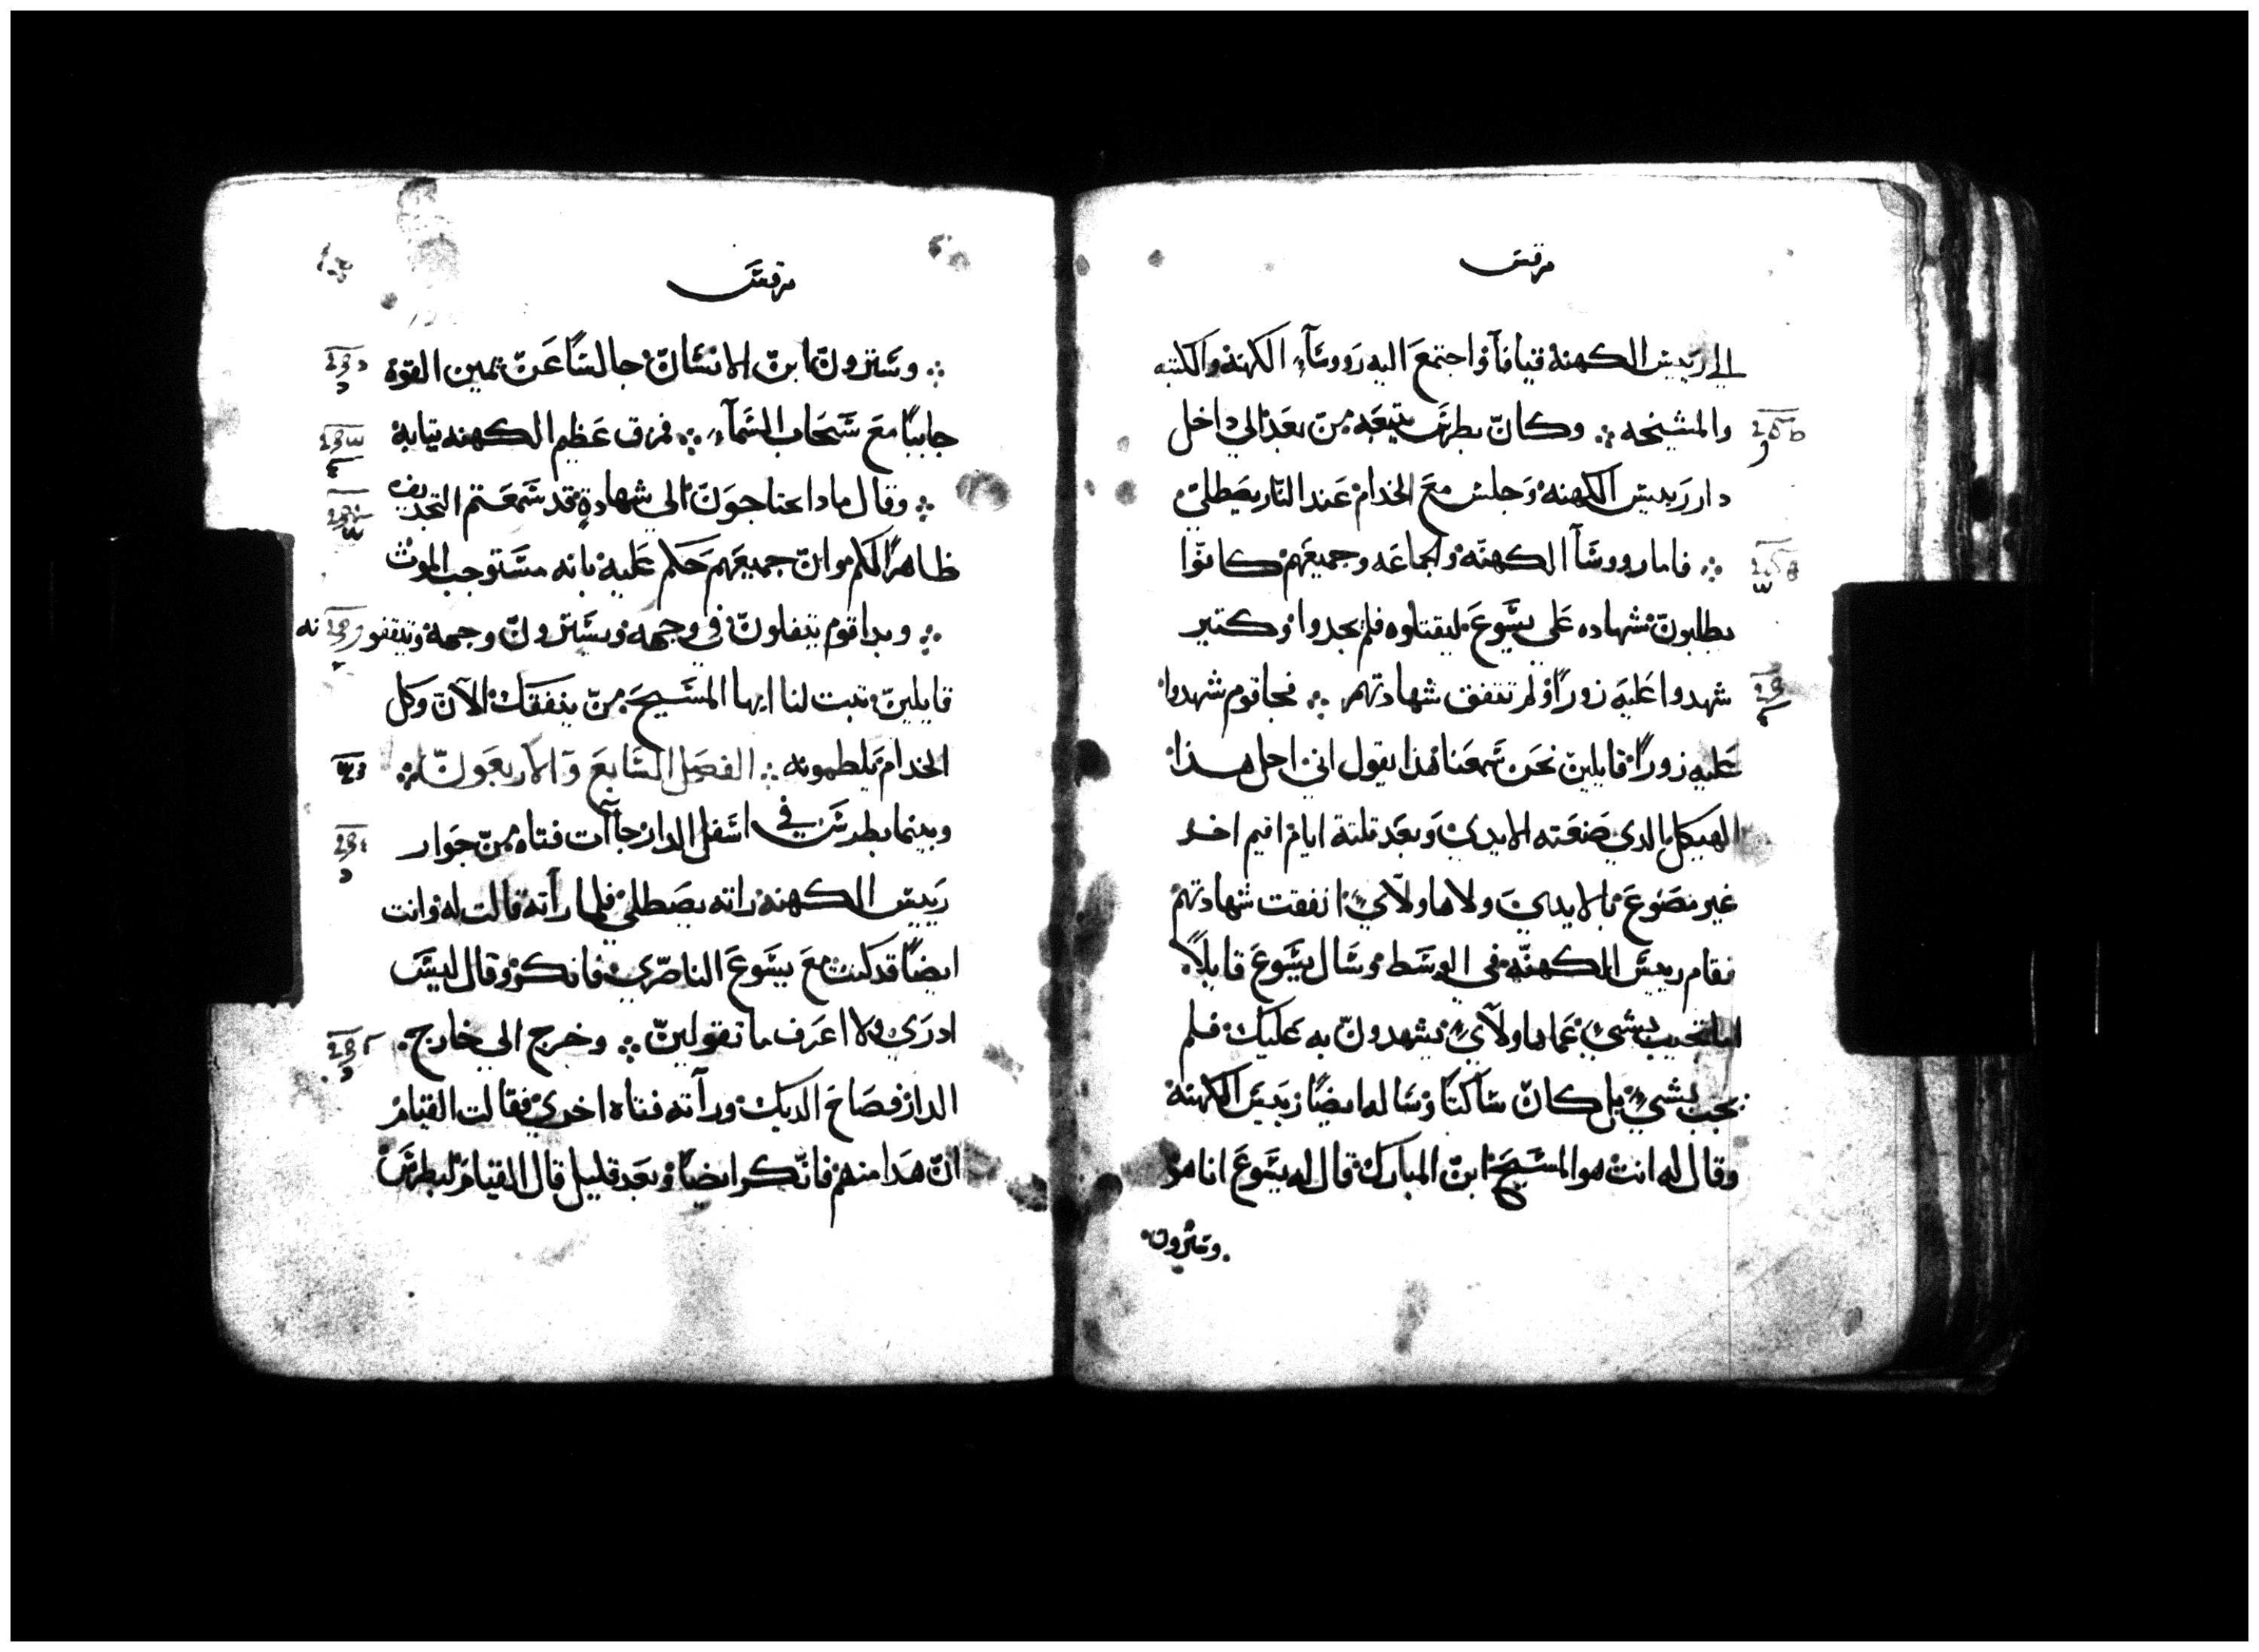 مرقس
الي رييس الكهنة قيافآ واجتمع اليه رووسآء الكهنة والكتبه
والمشيخه ܀ وكان بطرس يتبعه من بعد الي داخل
دار رييس الكهنة وجلس مع الخدام عند النار يصطلي
܀ فاما رووسآ الكهنه والجماعه وجميعهم كانوا
يطلبون شهاده علي يسوع ليقتلوه فلم يجدوا وكتير
شهدوا عليه زورًا ولم تتفق شهادتهم ܀ فجا قوم شهدوا
عليه زورًا قايلين نحن سمعنا هذا يقول اني احل هذا
الهيكل الدي صنعته الايدي وبعد تلتة ايام اقيم اخر
غير مصنوع بالايدي ولا هاولآي اتفقت شهادتهم
فقام رييس الكهنه في الوسط وسال يسوع قايلاً
اما تجيب بشي عما هاولآي يشهدون به عليك فلم
يجب بشي بل كان ساكتًا وساله ايضًا رييس الكهنة
وقال له انت هو المسيح ابن المبارك قال له يسوع انا هو
وسترون
مرقس
܀ وسترون ابن الانسان جالسًا عن يمين القوة
جاييًا مع سحاب السمآء ܀ فمزق عظيم الكهنه تيابه
܀ وقال مادا تحتاجون الي شهادةٍ قد سمعتم التجديفه
ظاهرًا لكم وان جميعهم حكم عليه بانه مستوجب الموت
܀ وبدا قوم يتفلون في وجهه ويسترون وجهة ويتقفونه
قايلين تنبت لنا ايها المسيح من ينفقك الآن وكل
الخدام يلطمونه ܀ الفصل السابع والاربعون ܀
وبينما بطرس في اسفل الدار جآت فتاه من جوار
رييس الكهنه راته يصطلي فلما رآته قالت له وانت
ايضًا قد كنت مع يسوع الناصري فانكر وقال ليس
ادري ولا اعرف ما تقولين ܀ وخرج الي خارج
الدار فصاح الديك ورآته فتاه اخري فقالت للقيام
ان هدا منهم فانكر ايضًا وبعد قليل قال القيام لبطرس